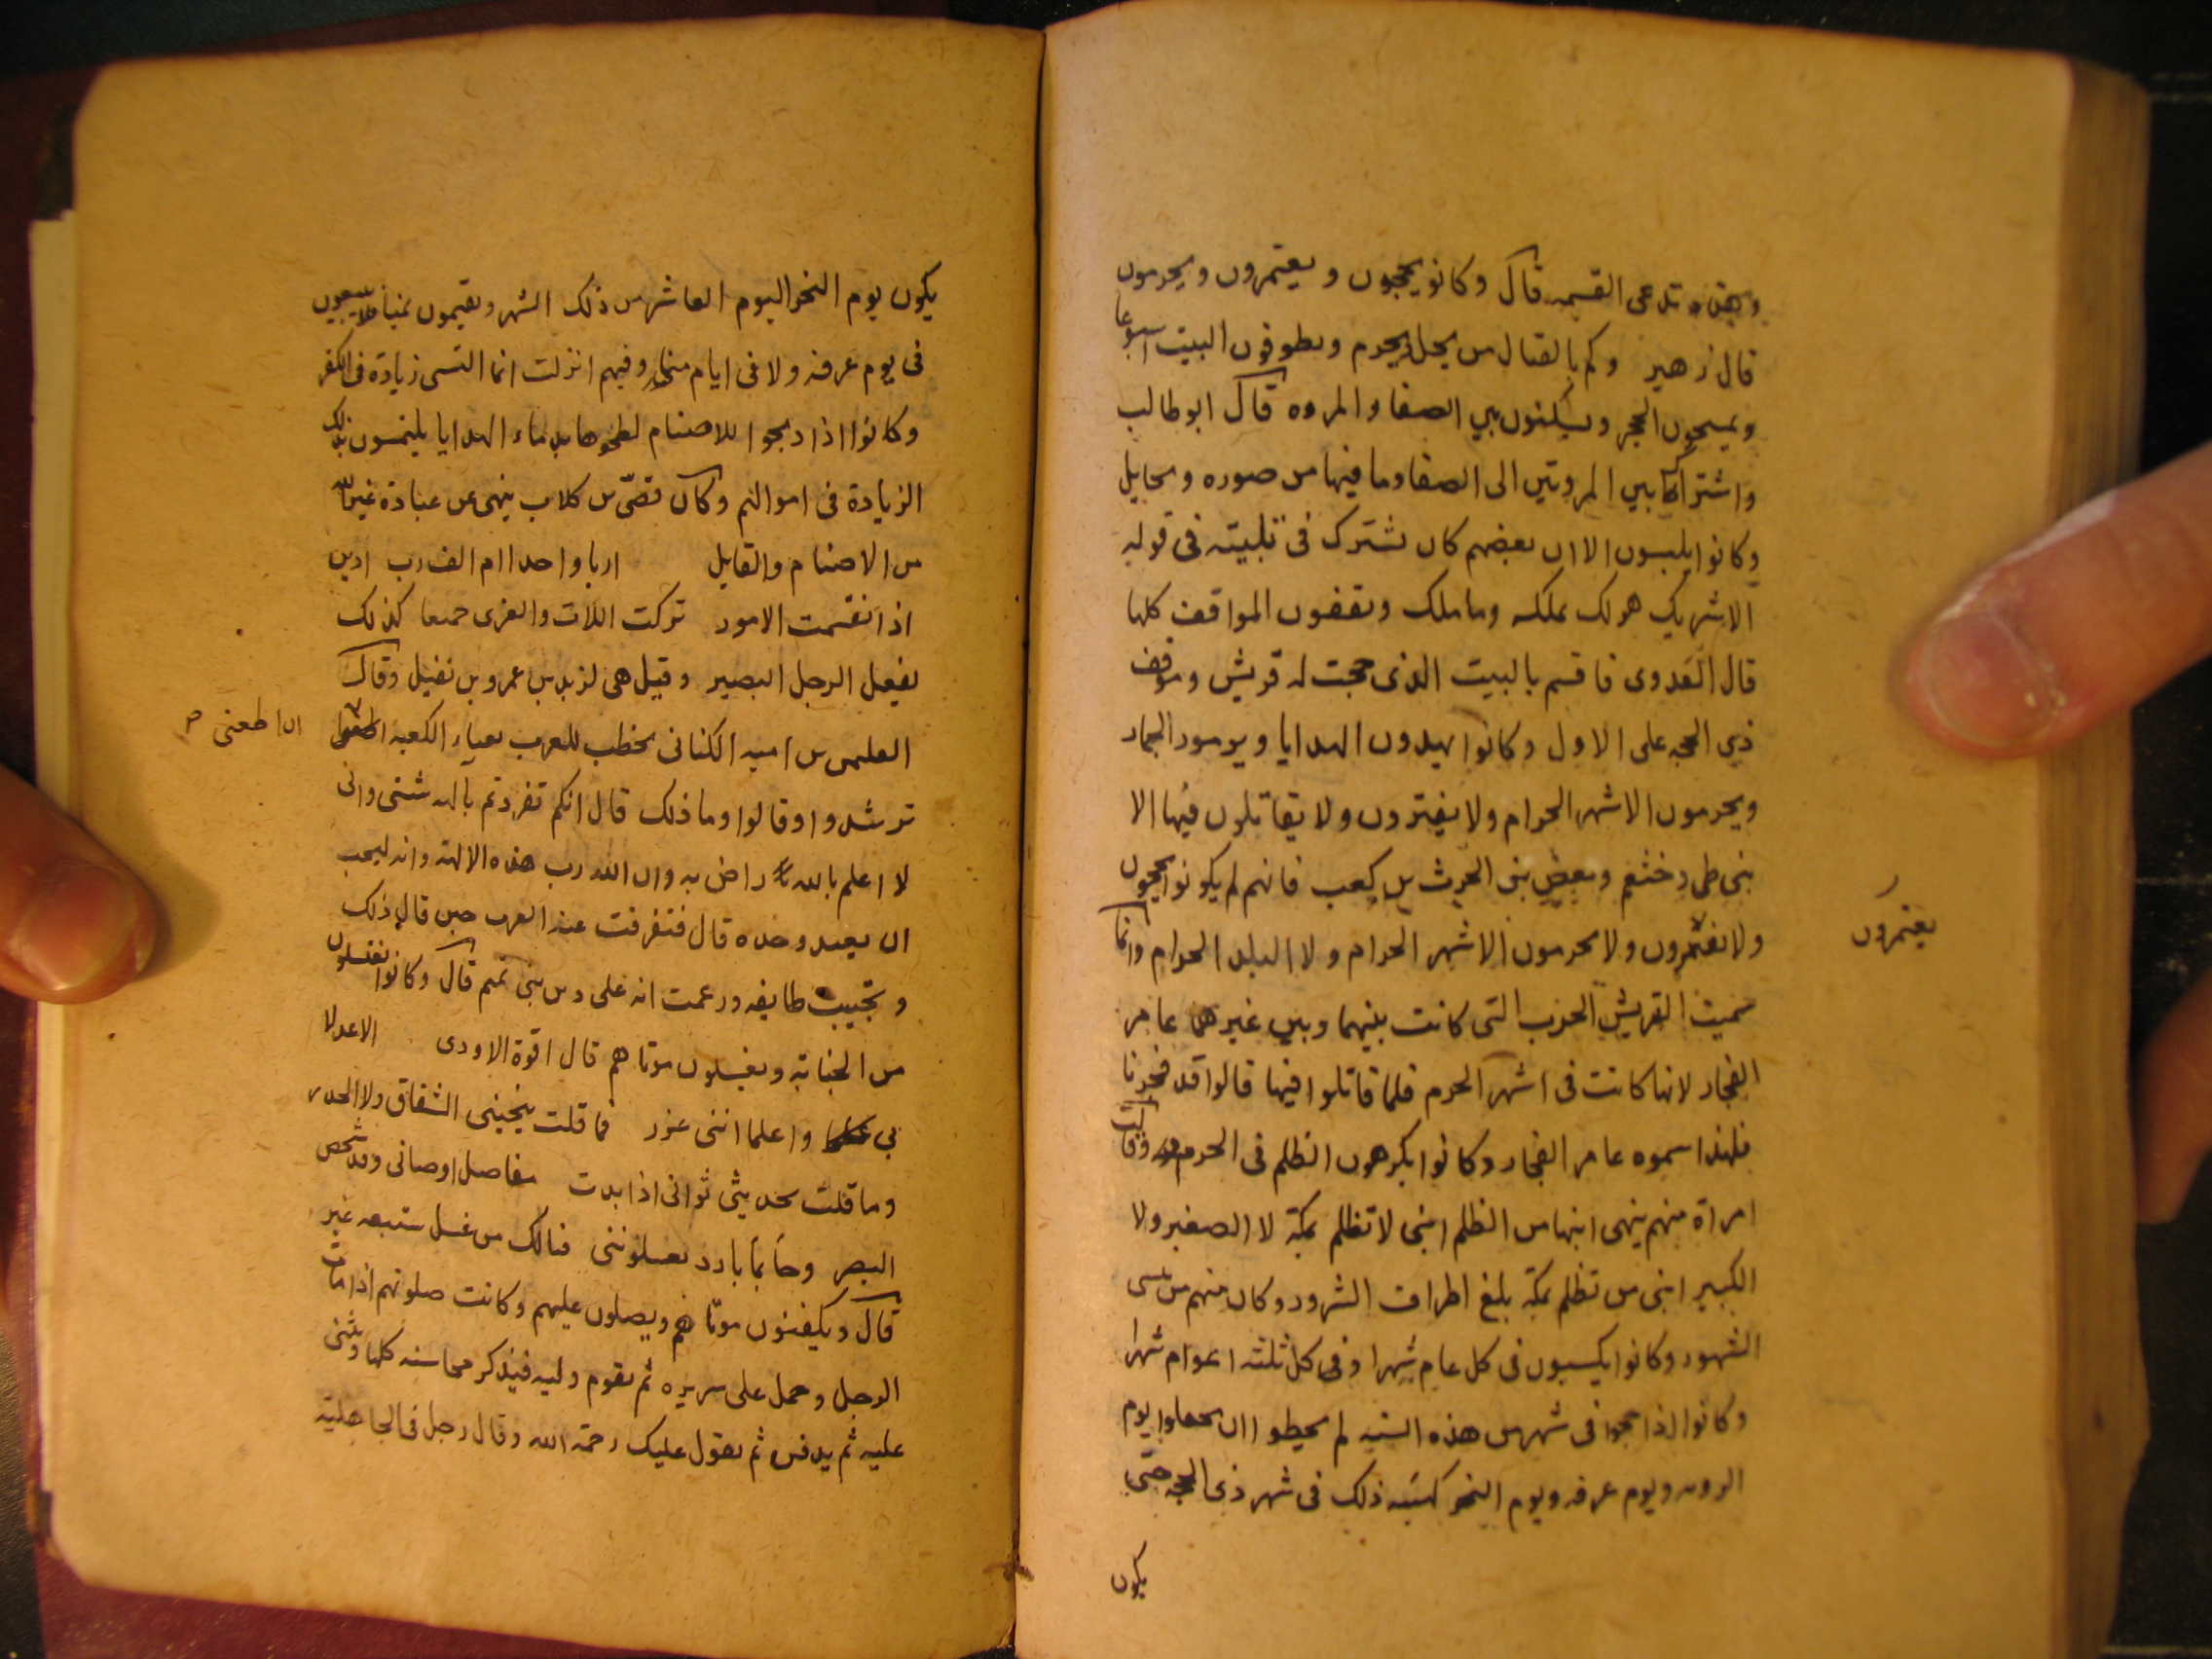 وهذه تدعى القسمه قال وكانو يحجون ويعتمرون ويحرمون
قال زهير وكم بالقنال من يحل ويحرم ويطوفون البيت اسبوعا
ويمسحون الحجر ويسكنون بين الصفا والمروه قال ابو طالب
واشتراكا بين المروتين الى الصفا وما فيها من صوره ومحايل
وكانوا يلبسون الا ان بعضهم كان يشترك في تلبيته في قوله
الا شريك هو لك تملكه وما ملك ويقفون المواقف كلها
قال العدوى فاقسم بالبيت الذى حجت له قريش وموقف
ذي الحجه على الاول وكانوا يهدون الهدايا ويرمون الجمار
ويحرمون الاشهر الحرام ولا يغترون ولا يقاتلون فيها الا
بنى طى وخثعم وبعض بنى الحرث بن كعب فانهم لم يكونوا يحجون
ولا يعتمرون ولا يحرمون الاشهر الحرام ولا البلد الحرام وانما
يعتمرون
سميت القريش الحرب التى كانت بينهما وبين غيرها عامر
الفجار لانها كانت فى اشهر الحرم فلما قاتلوا فيها قالوا قد فجرنا
فلهذا سموه عامر الفجار وكانوا يكرهون الظلم فى الحرم وقالت
امراة منهم ينهى ابنها من الظلم ابنى لا تظلم بمكة لا الصغير ولا
الكبير ابنى من تظلم بمكة يلغ اطراف الشرور وكان منهم من ينسى
الشهور وكانوا يكبسون فى كل عام شهرا وفى كل ثلثه اعوام شهرا
وكانوا اذا حجوا فى شهر من هذه السنه لم يحيطوا ان يجعلوا يوم
الترويه ويوم عرفه ويوم النحر كهيئه ذلك فى شهر ذى الحجه حتى
يكون
يكون يوم النحر اليوم العاشر من ذلك الشهر ويقيمون بمنى فلا يبيعون
فى يوم عرفه ولا فى ايام منى وفيهم انزلت انما النسى زيادة فى الكفر
وكانوا اذا ذبحوا للاصنام لطخوها بدماء الهدايا يلتمسون بذلك
الزيادة فى اموالهم وكان قصّى بن كلاب ينهى عن عبادة غير الله
من الاصنام والقايل اربا واحدا ام الف رب ادين
اذا نقسمت الامور تركت اللات والعزى جميعا كذلك
يفعل الرجل البصير وقيل هى لزيد بن عمرو بن نفيل وقال
العلمس بن اميه الكنانى يخطب للعرب بفناء الكعبه اطيعوا
ان اطعنى
ترشدوا وقالوا وما ذلك قال انكم تفردتم بالهه شتى وانى
لا اعلم بالله راض به وان الله رب هذه الالهه وانه ليحب
ان يعبد وحده قال فتفرقت عنه العرب حين قال ذلك
وتجنبت طايفه وزعمت انه على دين بنى تميم قال وكانوا يغتسلون
من الجنابة ويغسلون موتاهم قال افوة الاودى الا عدلا
بى واعلما اننى غرر فما قلت ينجينى الشقاق ولا الحذر
وما قلت يحديثى ثوانى اذا بدت مفاصل اوصانى وقد شخص
البصر وجا بما بارد يغسلوننى فيالك من غسل ستبعه غير
قال ويكفنون موتاهم ويصلون عليهم وكانت صلوتهم اذا مات
الرجل وحمل على سريره ثم يقوم وليه فيذكر محاسنه كلها ويثنى
عليه ثم يدفن ثم يقول عليك رحمة الله وقال رجل فى الجاهلية